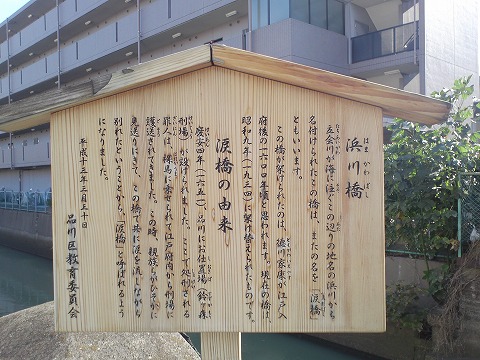 浜川橋
はまかわばし
立会川が海に注ぐこの辺りの地名の浜川から
名付けられたこの橋は、またの名を「涙橋」
ともいいます。
この橋が架けられたのは、徳川家康が江戸入
府後の一六〇〇年頃と思われます。現在の橋は、
昭和九年(一九三四)に架け替えられたものです。
涙橋の由来
慶安四年(一六五一)、品川にお仕置場(鈴ヶ森
刑場)が設けられました。ここで処刑される
罪人は、裸馬に乗せられて江戸府内から刑場に
護送されてきました。この時、親族らがひそかに
見送りにきて、この橋で共に涙を流しながら
別れたということから、「涙橋」と呼ばれるよう
になりました。
平成十三年三月三十日
品川区教育委員会